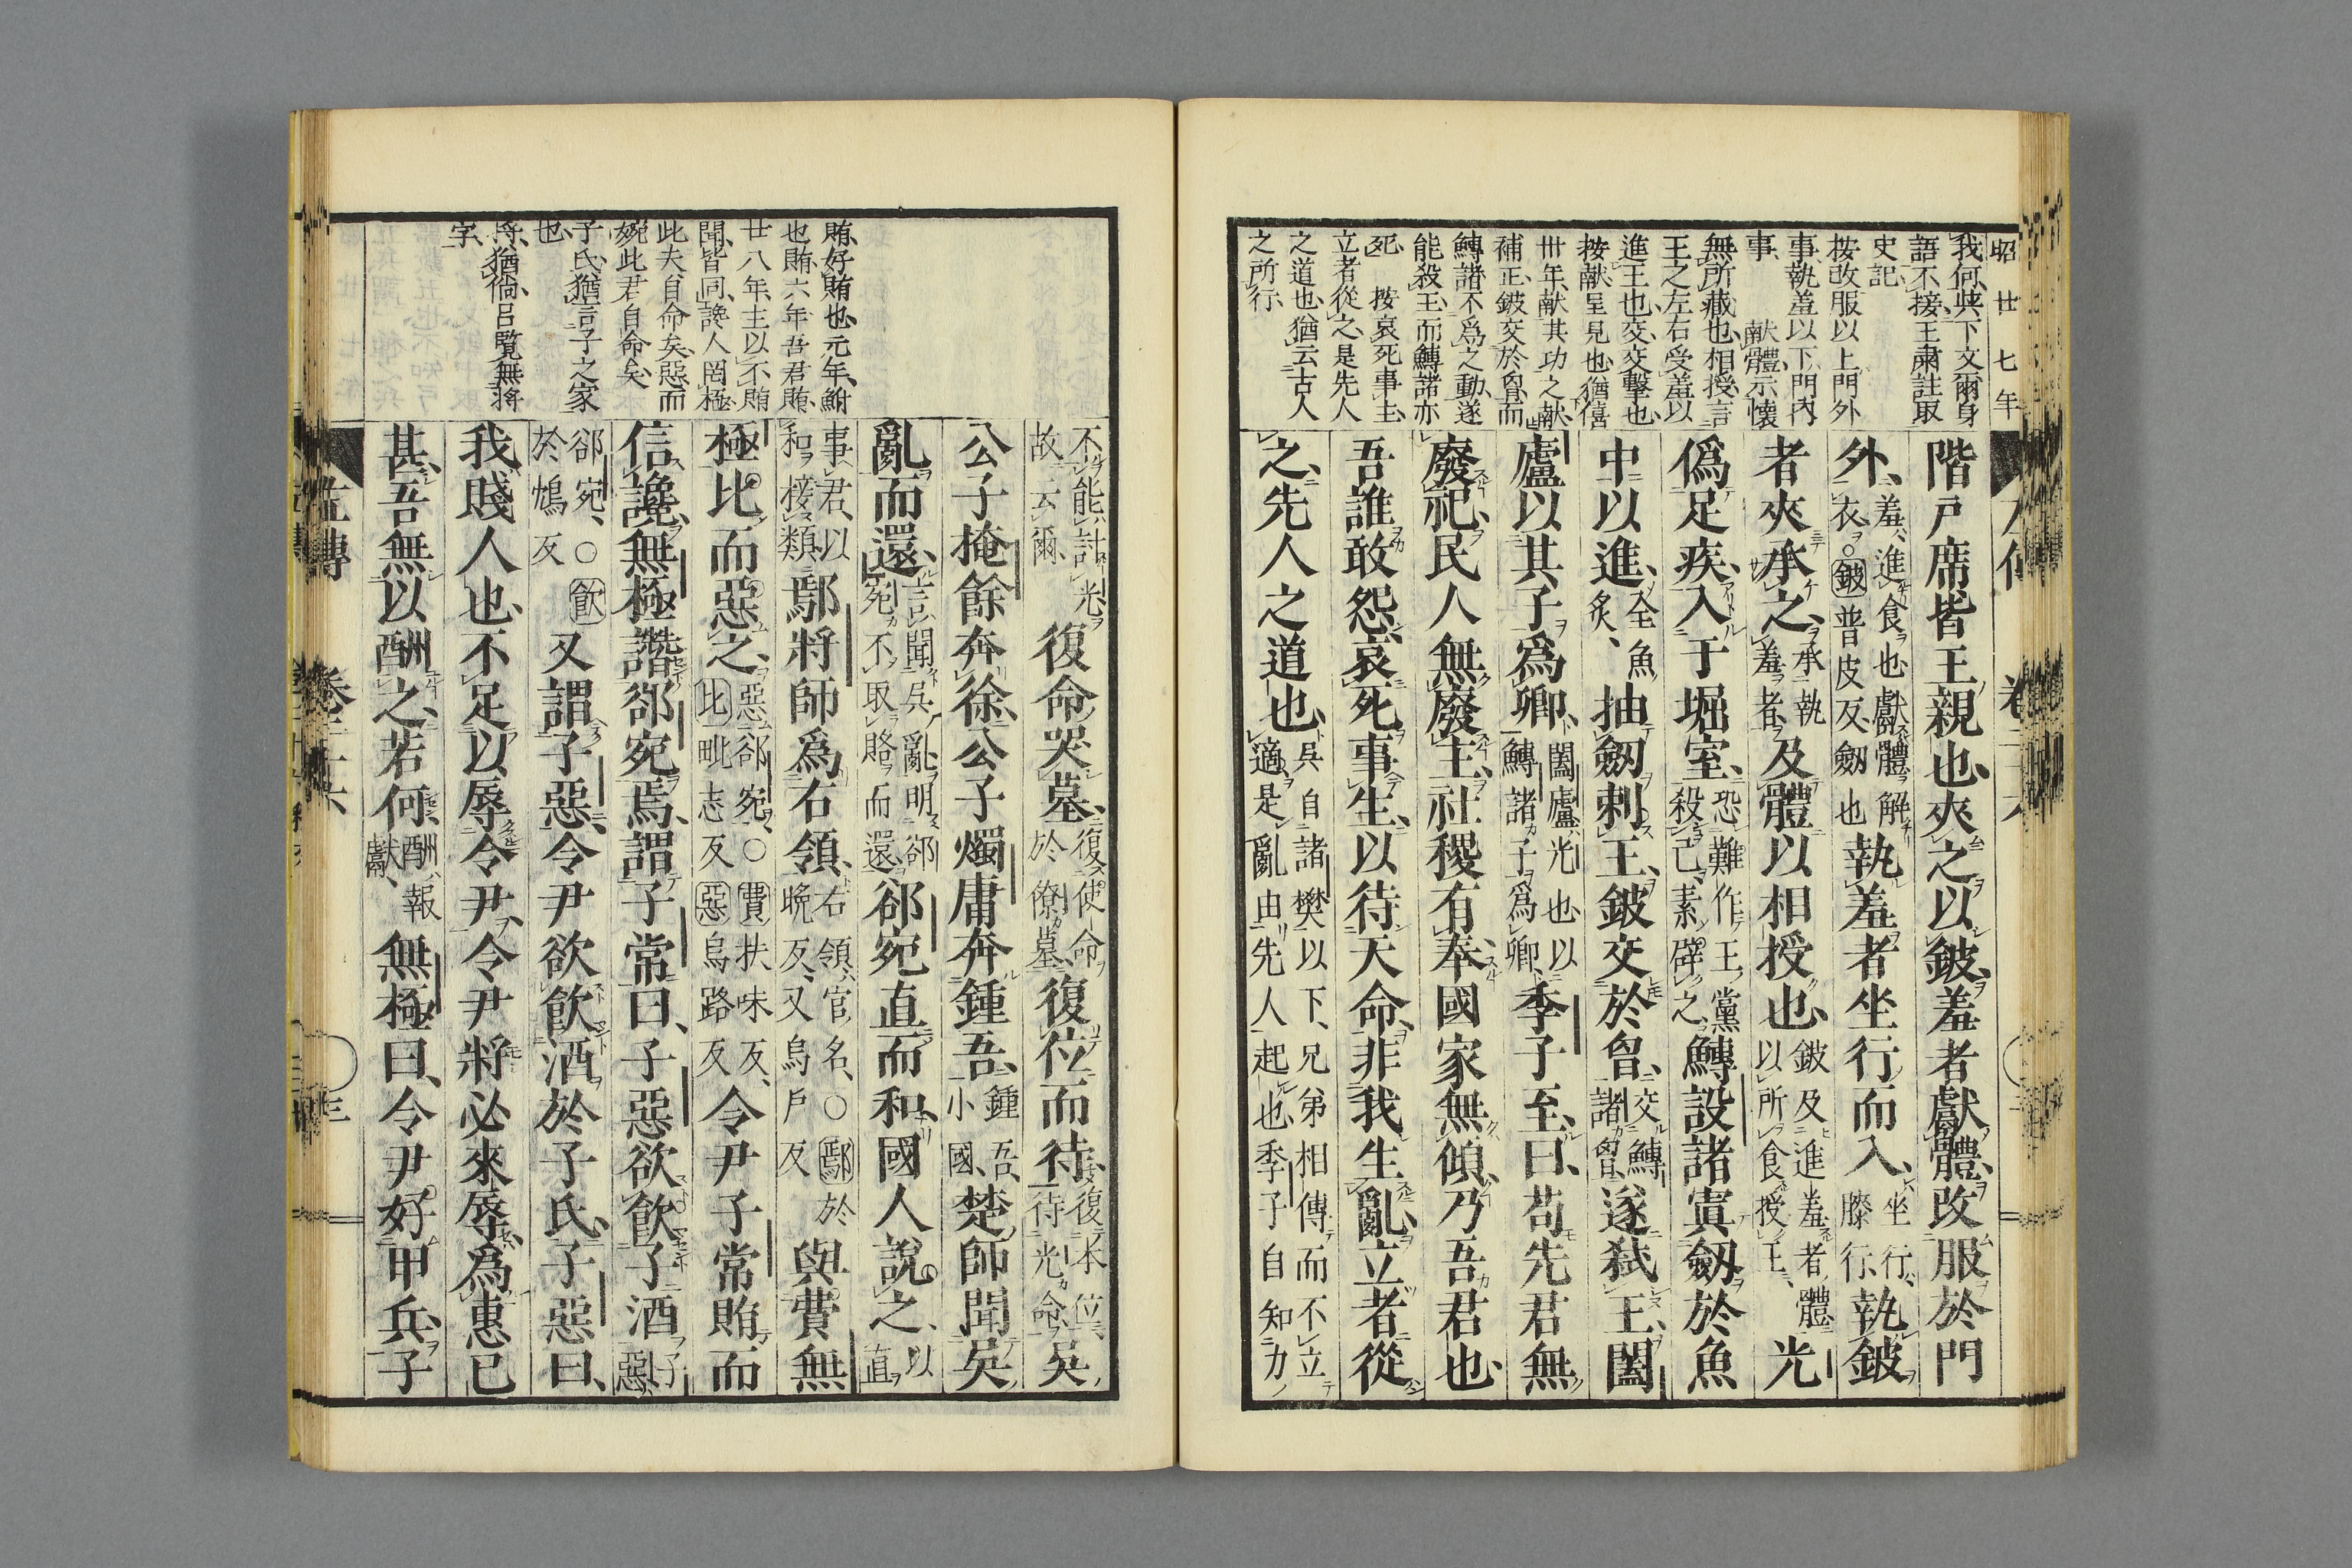 昭廿七年
我何與下文爾身
語不接王肅註取
史記
按改服以上門外
事執羞以下門內
事 獻體示懷
無所藏也相授言
王之左右受羞以
進王也交交擊也
按献呈見也猶僖
卅年献其功之献
補正鈹交於胷而
鱄諸不爲之動遂
能殺王而鱄諸亦
死 按哀死事主
立者從之是先人
之道也猶云古人
之所行
階戶席皆王親也夾之以鈹羞者獻體改服於門
外羞進食也獻體解衣○鈹普皮反劔也執羞者坐行而入坐行膝行執鈹
者夾承之承執羞者及體以相授也鈹及進羞者體以所食授王光
僞足疾入于堀室恐難作王黨殺己素辟之鱄設諸寘劔於魚
中以進全魚炙抽劔刺王鈹交於胷交鱄諸胷遂弑王闔
廬以其子爲卿闔廬光也以鱄諸子爲卿季子至曰苟先君無
廢祀民人無廢主社稷有奉國家無傾乃吾君也
吾誰敢怨哀死事生以待天命非我生亂立者從
之先人之道也吳自諸樊以下兄弟相傳而不立適是亂由先人起也季子自知力
賄好賄也元年鮒
也賄六年吾君賄
廿八年主以不賄
聞皆同讒人罔極
此夫自命矣惡而
婉此君自命矣
子氏猶言子之家
也
將猶倘呂覽無將
字
不能討光故云爾復命哭墓復使命於僚墓復位而待復本位待光命吳
公子掩餘奔徐公子燭庸奔鍾吾鍾吾小國楚師聞吳
亂而還言聞吳亂明郤宛不取賂而還郤宛直而和國人說之以直
事君以和接類鄢將師爲右領右領官名○鄢於晩反又烏戶反與費無
極比而惡之惡郤宛○比毗志反費扶味反惡烏路反令尹子常賄而
信讒無極譖郤宛焉謂子常曰子惡欲飮子酒子惡
郤宛○飮於鴆反又謂子惡令尹欲飮酒於子氏子惡曰
我賤人也不足以辱令尹令尹將必來辱爲惠已
甚吾無以酬之若何酬報獻無極曰令尹好甲兵子